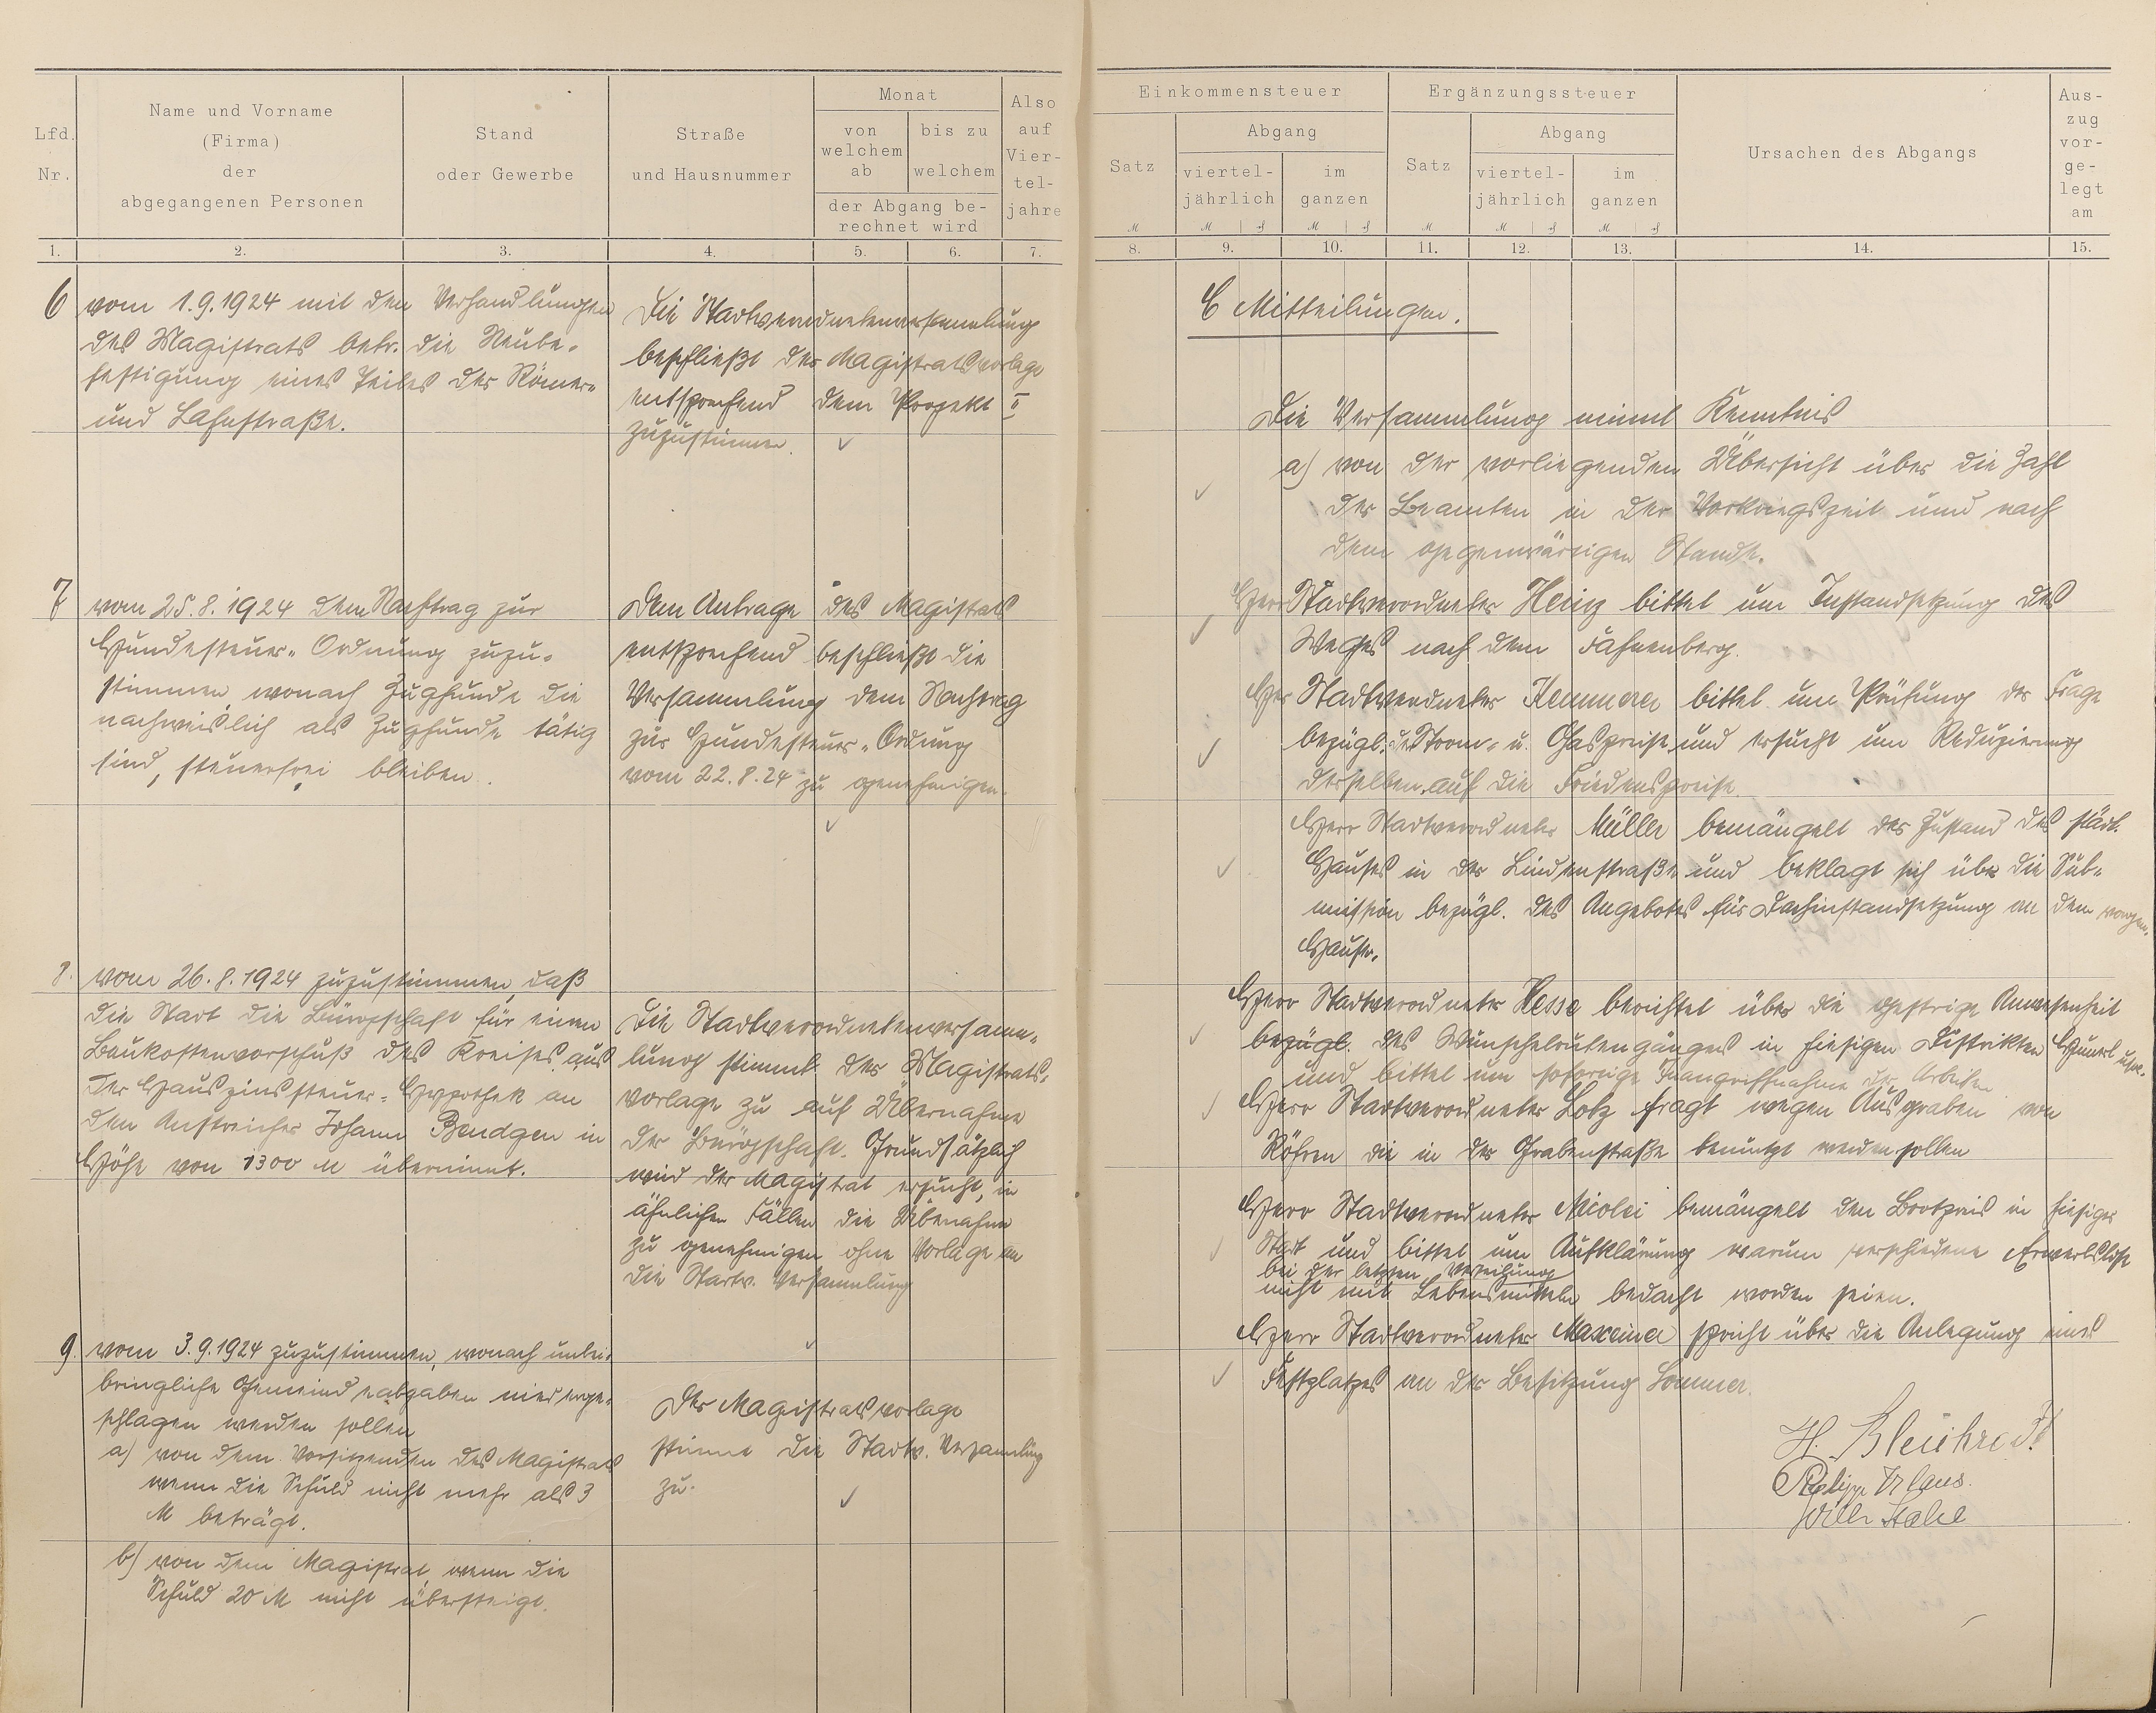 Lfd. Nr.
Name und Vorname
(Firma)
der
abgegangenen Personen
Stand
oder Gewerbe
Straße
und Hausnummer
Monat
von
welchem
ab
bis zu
welchem
der Abgang be-
rechnet wird
Also
auf
Vier-
tel-
jahre
1. 2. 3. 4. 5. 6. 7.
6 vom 1.9.1924 mit den Verhandlungen
des Magistrats betr. die Neube-
festigung eines Teiles der Römer-
und Lahnstraße.
Die Stadtverordnetenversammlung
beschließt der Magistratsvorlage
entsprechend dem Projekt II
zuzustimmen.
7 vom 25.8.1924 dem Nachtrag zur
Hundesteuer-Ordnung zuzu-
stimmen, wonach Zughunde die
nachweislich als Zughunde tätig
sind, steuerfrei bleiben.
Dem Antrage des Magistrats
entsprechend beschließt die
Versammlung dem Nachtrag
zur Hundesteuer-Ordnung
vom 22.8.24 zu genehmigen.
8. vom 26.8.1924 zuzustimmen, daß
die Stadt die Bürgschaft für einen
Baukostenvorschuß des Kreises aus
der Hauszinssteuer-Hypothek an
den Anstreicher Johann Bendgen in
Höhe von 1300 M übernimmt.
Die Stadtverordnetenversamm-
lung stimmt der Magistrats-
vorlage zu auf Übernahme
der Bürgschaft. Grundsätzlich
wird der Magistrat ersucht, in
ähnlichen Fällen die Übernahme
zu genehmigen ohne Vorlage an
die Stadtv. Versammlung
9. vom 3.9.1924 zuzustimmen, wonach unbei-
bringliche Gemeindeabgaben niederge-
schlagen werden sollen
a) von dem Vorsitzenden des Magistrats
wenn die Schuld nicht mehr als 3
M beträgt.
b) von dem Magistrat, wenn die
Schuld 20 M nicht übersteigt.
Der Magistratsvorlage
stimmt die Stadtv. Versammlung
zu.
Einkommensteuer
Satz
Abgang
viertel-
jährlich
im
ganzen
Ergänzungssteuer
Satz
Abgang
viertel-
jährlich
im
ganzen
Ursachen des Abgangs
Aus-
zug
vor-
ge-
legt
am
8. 9. 10. 11. 12. 13. 14. 15.
C Mitteilungen.
Die Versammlung nimmt Kenntnis
a) von der vorliegenden Übersicht über die Zahl
der Beamten in der Vorkriegszeit und nach
dem gegenwärtigen Stande.
Herr Stadtverordneter Heinz bittet um Instandsetzung des
Weges nach dem Fahnenberg.
Herr Stadtverordneter Kemmerer bittet um Prüfung der Frage
bezügl. der Strom- u. Gaspreise und ersucht um Reduzierung
derselben auf die Friedenspreise.
Herr Stadtverordneter Müller bemängelt der Zustand des städt.
Hauses in der Lindenstraße und beklagt sich über die Sub-
mission bezügl. des Angebotes für Dachinstandsetzung an dem vorgen.
Hause.
Herr Stadtverordneter Hesse berichtet über die gestrige Anwesenheit
bezügl. des Wünschelrutengängers in hiesigen Distrikten Hunerl usw.
und bittet um sofortige Inangriffnahme der Arbeiten
Herr Stadtverordneter Lotz fragt wegen Ausgraben von
Röhren die in der Grabenstraße benutzt werden sollen
Herr Stadtverordneter Nicolei bemängelt den Brotpreis in hiesiger
Stadt und bittet um Aufklärung warum verschiedene Erwerbslose
bei der letzten Verteilung
nicht mit Lebensmitteln bedacht worden seien.
Herr Stadtverordneter Maxeiner spricht über die Anlegung eines
Festplatzes an der Besitzung Sommer.
H. Bleichrodt
Philipp Klaus.
Willi Stahl